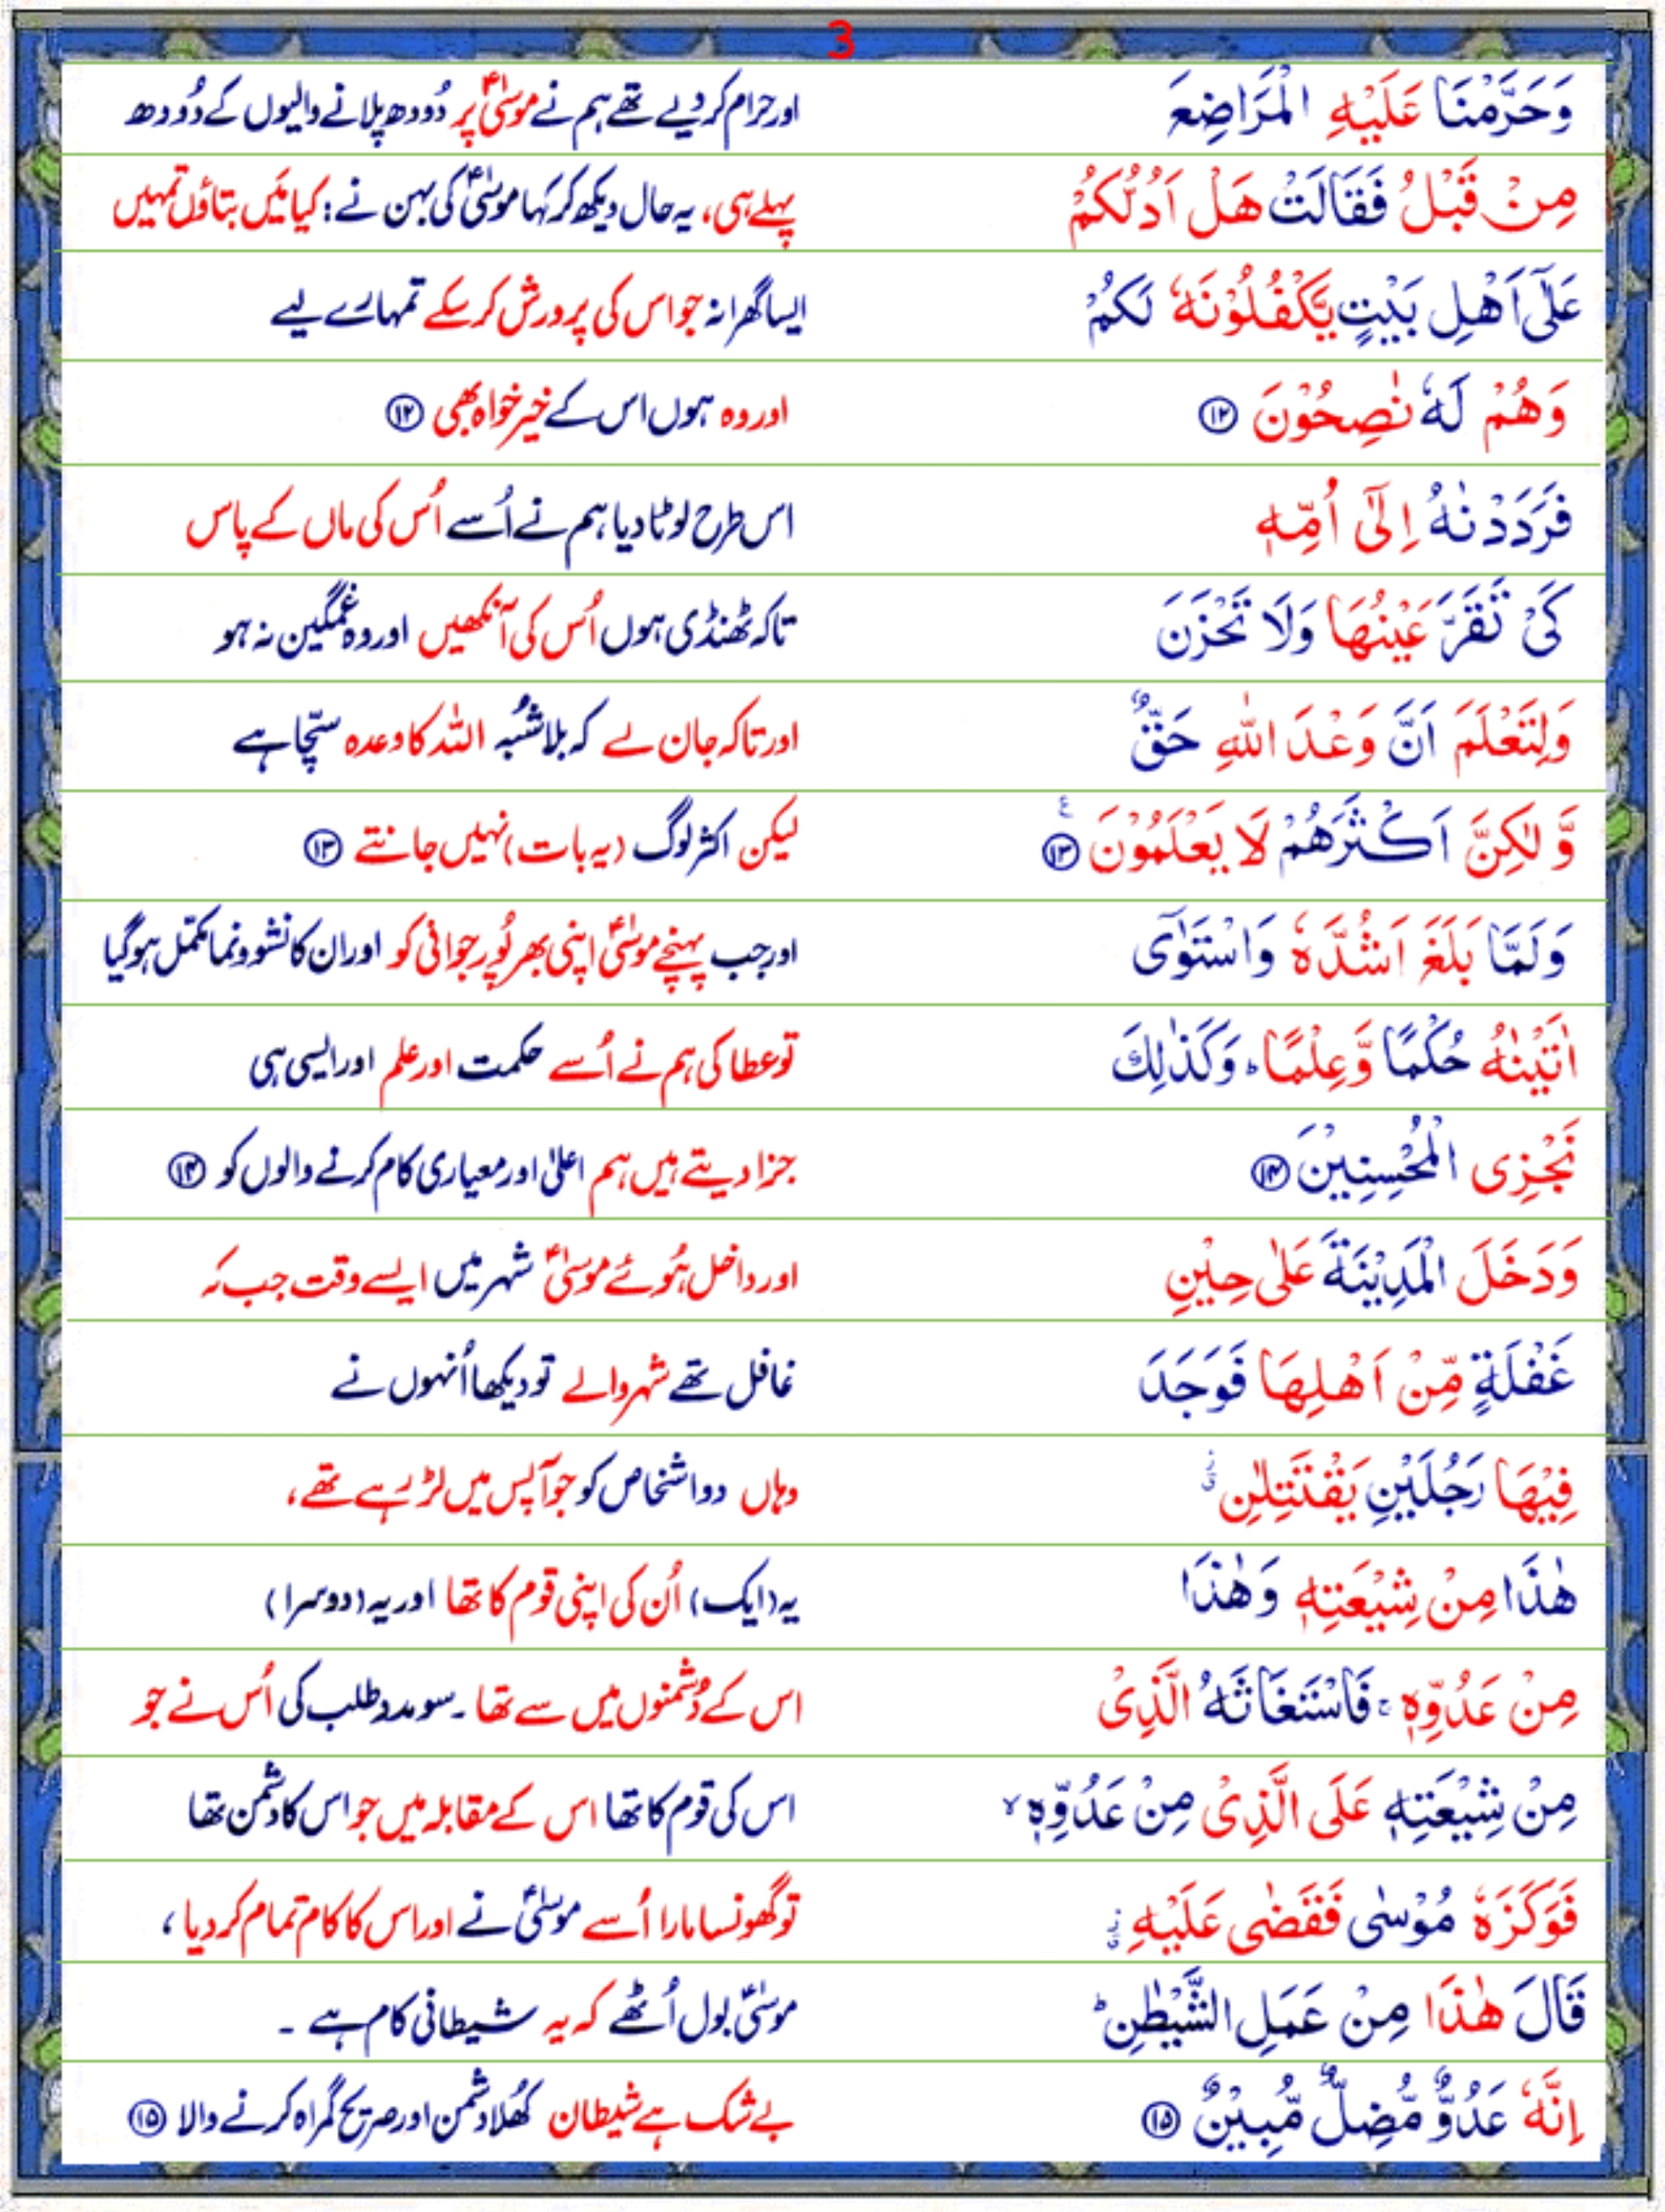 3
وَحَرَّمْنَا عَلَيْهِ الْمَرَاضِعَ اور حرام کر دیے تھے ہم نے موسیٰؑ پر دُودھ پلانے والیوں کے دُودھ
مِنْ قَبْلُ فَقَالَتْ هَلْ اَدُلُّكُمْ پہلے ہی، یہ حال دیکھ کر کہا موسیٰؑ کی بہن نے: کیا مَیں بتاؤں تمہیں
عَلٰٓى اَهْلِ بَيْتٍ يَّكْفُلُوْنَهٗ لَكُمْ ایسا گھرانہ جو اس کی پرورش کر سکے تمہارے لیے
وَهُمْ لَهٗ نٰصِحُوْنَ ۝۱۲ اور وہ ہوں اس کے خیر خواہ بھی ۝۱۲
فَرَدَدْنٰهُ اِلٰٓى اُمِّهٖ اس طرح لوٹا دیا ہم نے اُسے اُس کی ماں کے پاس
كَىْ تَقَرَّ عَيْنُهَا وَلَا تَحْزَنَ تاکہ ٹھنڈی ہوں اُس کی آنکھیں اور وہ غمگین نہ ہو
وَلِتَعْلَمَ اَنَّ وَعْدَ اللّٰهِ حَقٌّ اور تاکہ جان لے کہ بلاشُبہ اللہ کا وعدہ سچّا ہے
وَّلٰكِنَّ اَكْثَرَهُمْ لَا يَعْلَمُوْنَ ۝۱۳ۧ لیکن اکثر لوگ (یہ بات) نہیں جانتے ۝۱۳
وَلَمَّا بَلَغَ اَشُدَّهٗ وَاسْتَوٰٓى اور جب پہنچے موسیٰؑ اپنی بھرپُور جوانی کو اور ان کا نشوونما مکمّل ہو گیا
اٰتَيْنٰهُ حُكْمًا وَّعِلْمًا ؕ وَكَذٰلِكَ تو عطا کی ہم نے اُسے حکمت اور علم اور ایسی ہی
نَجْزِى الْمُحْسِنِيْنَ ۝۱۴ جزا دیتے ہیں ہم اعلیٰ اور معیاری کام کرنے والوں کو ۝۱۴
وَدَخَلَ الْمَدِيْنَةَ عَلٰى حِيْنِ اور داخل ہُوئے موسیٰؑ شہر میں ایسے وقت جب کہ
غَفْلَةٍ مِّنْ اَهْلِهَا فَوَجَدَ غافل تھے شہر والے تو دیکھا اُنہوں نے
فِيْهَا رَجُلَيْنِ يَقْتَتِلٰنِ ۗ وہاں دو اشخاص کو جو آپس میں لڑ رہے تھے،
هٰذَا مِنْ شِيْعَتِهٖ وَهٰذَا یہ (ایک) اُن کی اپنی قوم کا تھا اور یہ (دوسرا)
مِنْ عَدُوِّهٖ ۚ فَاسْتَغَاثَهُ الَّذِىْ اس کے دُشمنوں میں سے تھا۔ سو مدد طلب کی اُس نے جو
مِنْ شِيْعَتِهٖ عَلَى الَّذِىْ مِنْ عَدُوِّهٖ ۙ اس کی قوم کا تھا اس کے مقابلہ میں جو اس کا دشمن تھا
فَوَكَزَهٗ مُوْسٰى فَقَضٰى عَلَيْهِ ۗ تو گھونسا مارا اُسے موسیٰؑ نے اور اس کا کام تمام کر دیا،
قَالَ هٰذَا مِنْ عَمَلِ الشَّيْطٰنِ ؕ موسیٰؑ بول اُٹھے کہ یہ شیطانی کام ہے۔
اِنَّهٗ عَدُوٌّ مُّضِلٌّ مُّبِيْنٌ ۝۱۵ بے شک ہے شیطان کھُلا دشمن اور صریح گمراہ کرنے والا ۝۱۵